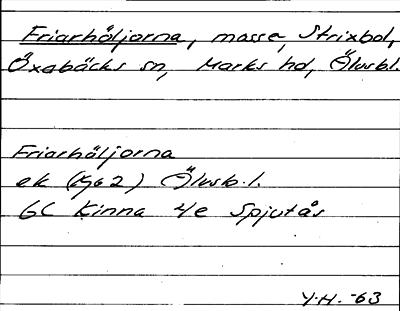 Friarhöljorna, mosse, Strixbol,
Öxabäcks sn, Marks hd, Älvsb.l.
Friarhöljorna
ek (Kg 62) Älvsb.l.
6C Kinna 4e Spjutås
Y.H. -63